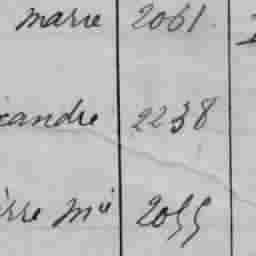 marie 2061
candre 2238
erre Mie 2055